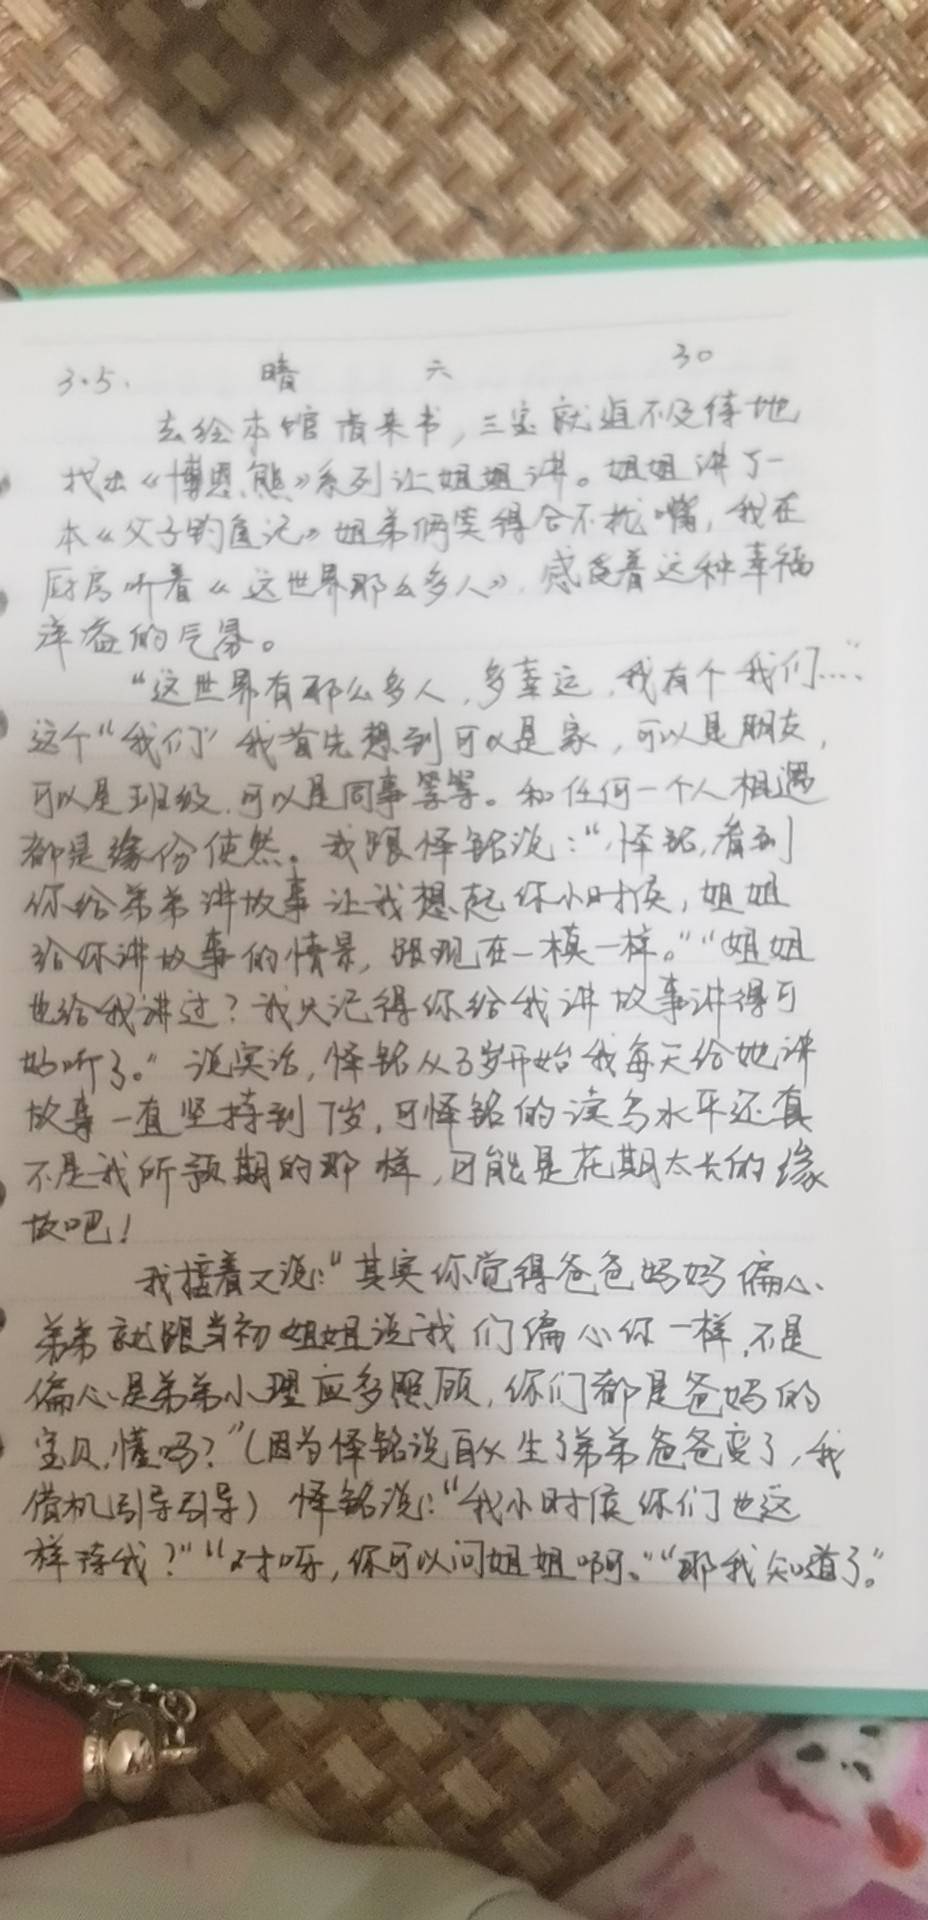 3.5. 晴 六 30
去绘本馆借来书，三宝就迫不及待地
找出《博恩熊》系列让姐姐讲。姐姐讲了一
本《父子钓鱼记》姐弟俩笑得合不拢嘴，我在
厨房听着《这世界那么多人》，感受着这种幸福
洋溢的气氛。
“这世界有那么多人，多幸运，我有个我们……”
这个“我们”我首先想到可以是家，可以是朋友，
可以是班级，可以是同事等等。和任何一个人相遇
都是缘份使然。我跟怿铭说：“怿铭，看到
你给弟弟讲故事让我想起你小时候，姐姐
给你讲故事的情景，跟现在一模一样。”“姐姐
也给我讲过？我只记得你给我讲故事讲得可
好听了。”说实话，怿铭从3岁开始我每天给她讲
故事一直坚持到7岁，可怿铭的读写水平还真
不是我所预期的那样，可能是花期太长的缘
故吧！
我接着又说：“其实你觉得爸爸妈妈偏心
弟弟就跟当初姐姐说我们偏心你一样，不是
偏心是弟弟小理应多照顾，你们都是爸妈的
宝贝，懂吗？”（因为怿铭说自从生了弟弟爸爸变了，我
借机引导引导）怿铭说：“我小时候你们也这
样待我？”“对呀，你可以问姐姐啊。”“那我知道了。”